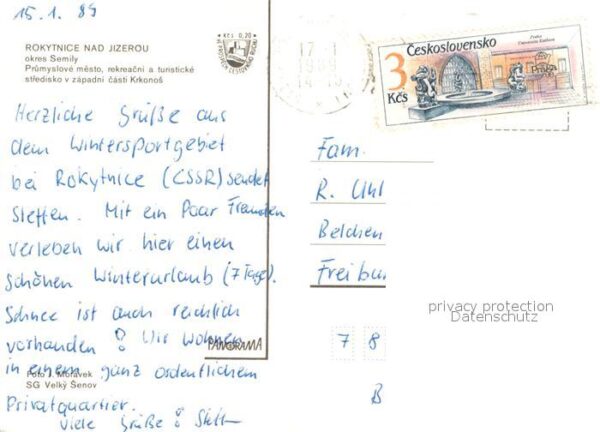 15.1.89
ROKYTNICE NAD JIZEROU
okres Semily
Průmyslové město, rekreační a turistické
středisko v západní části Krkonoš
Kčs 0,20
Herzliche Grüße aus
dem Wintersportgebiet
bei Rokytnice (ČSSR) sendet
Steffen. Mit ein Paar Freunden
verleben wir hier einen
schönen Winterurlaub (7 Tage).
Schnee ist auch reichlich
vorhanden! Wir wohnen
in einem ganz ordentlichem
Privatquartier.
Viele Grüße! Steff
PANORAMA
Foto J. Morávek
SG Velký Šenov
Československo
3
Kčs
Praha
17.-1
1989
Fam.
R. Uhl
Belchen
Freibu
privacy protection
Datenschutz
7 8
B